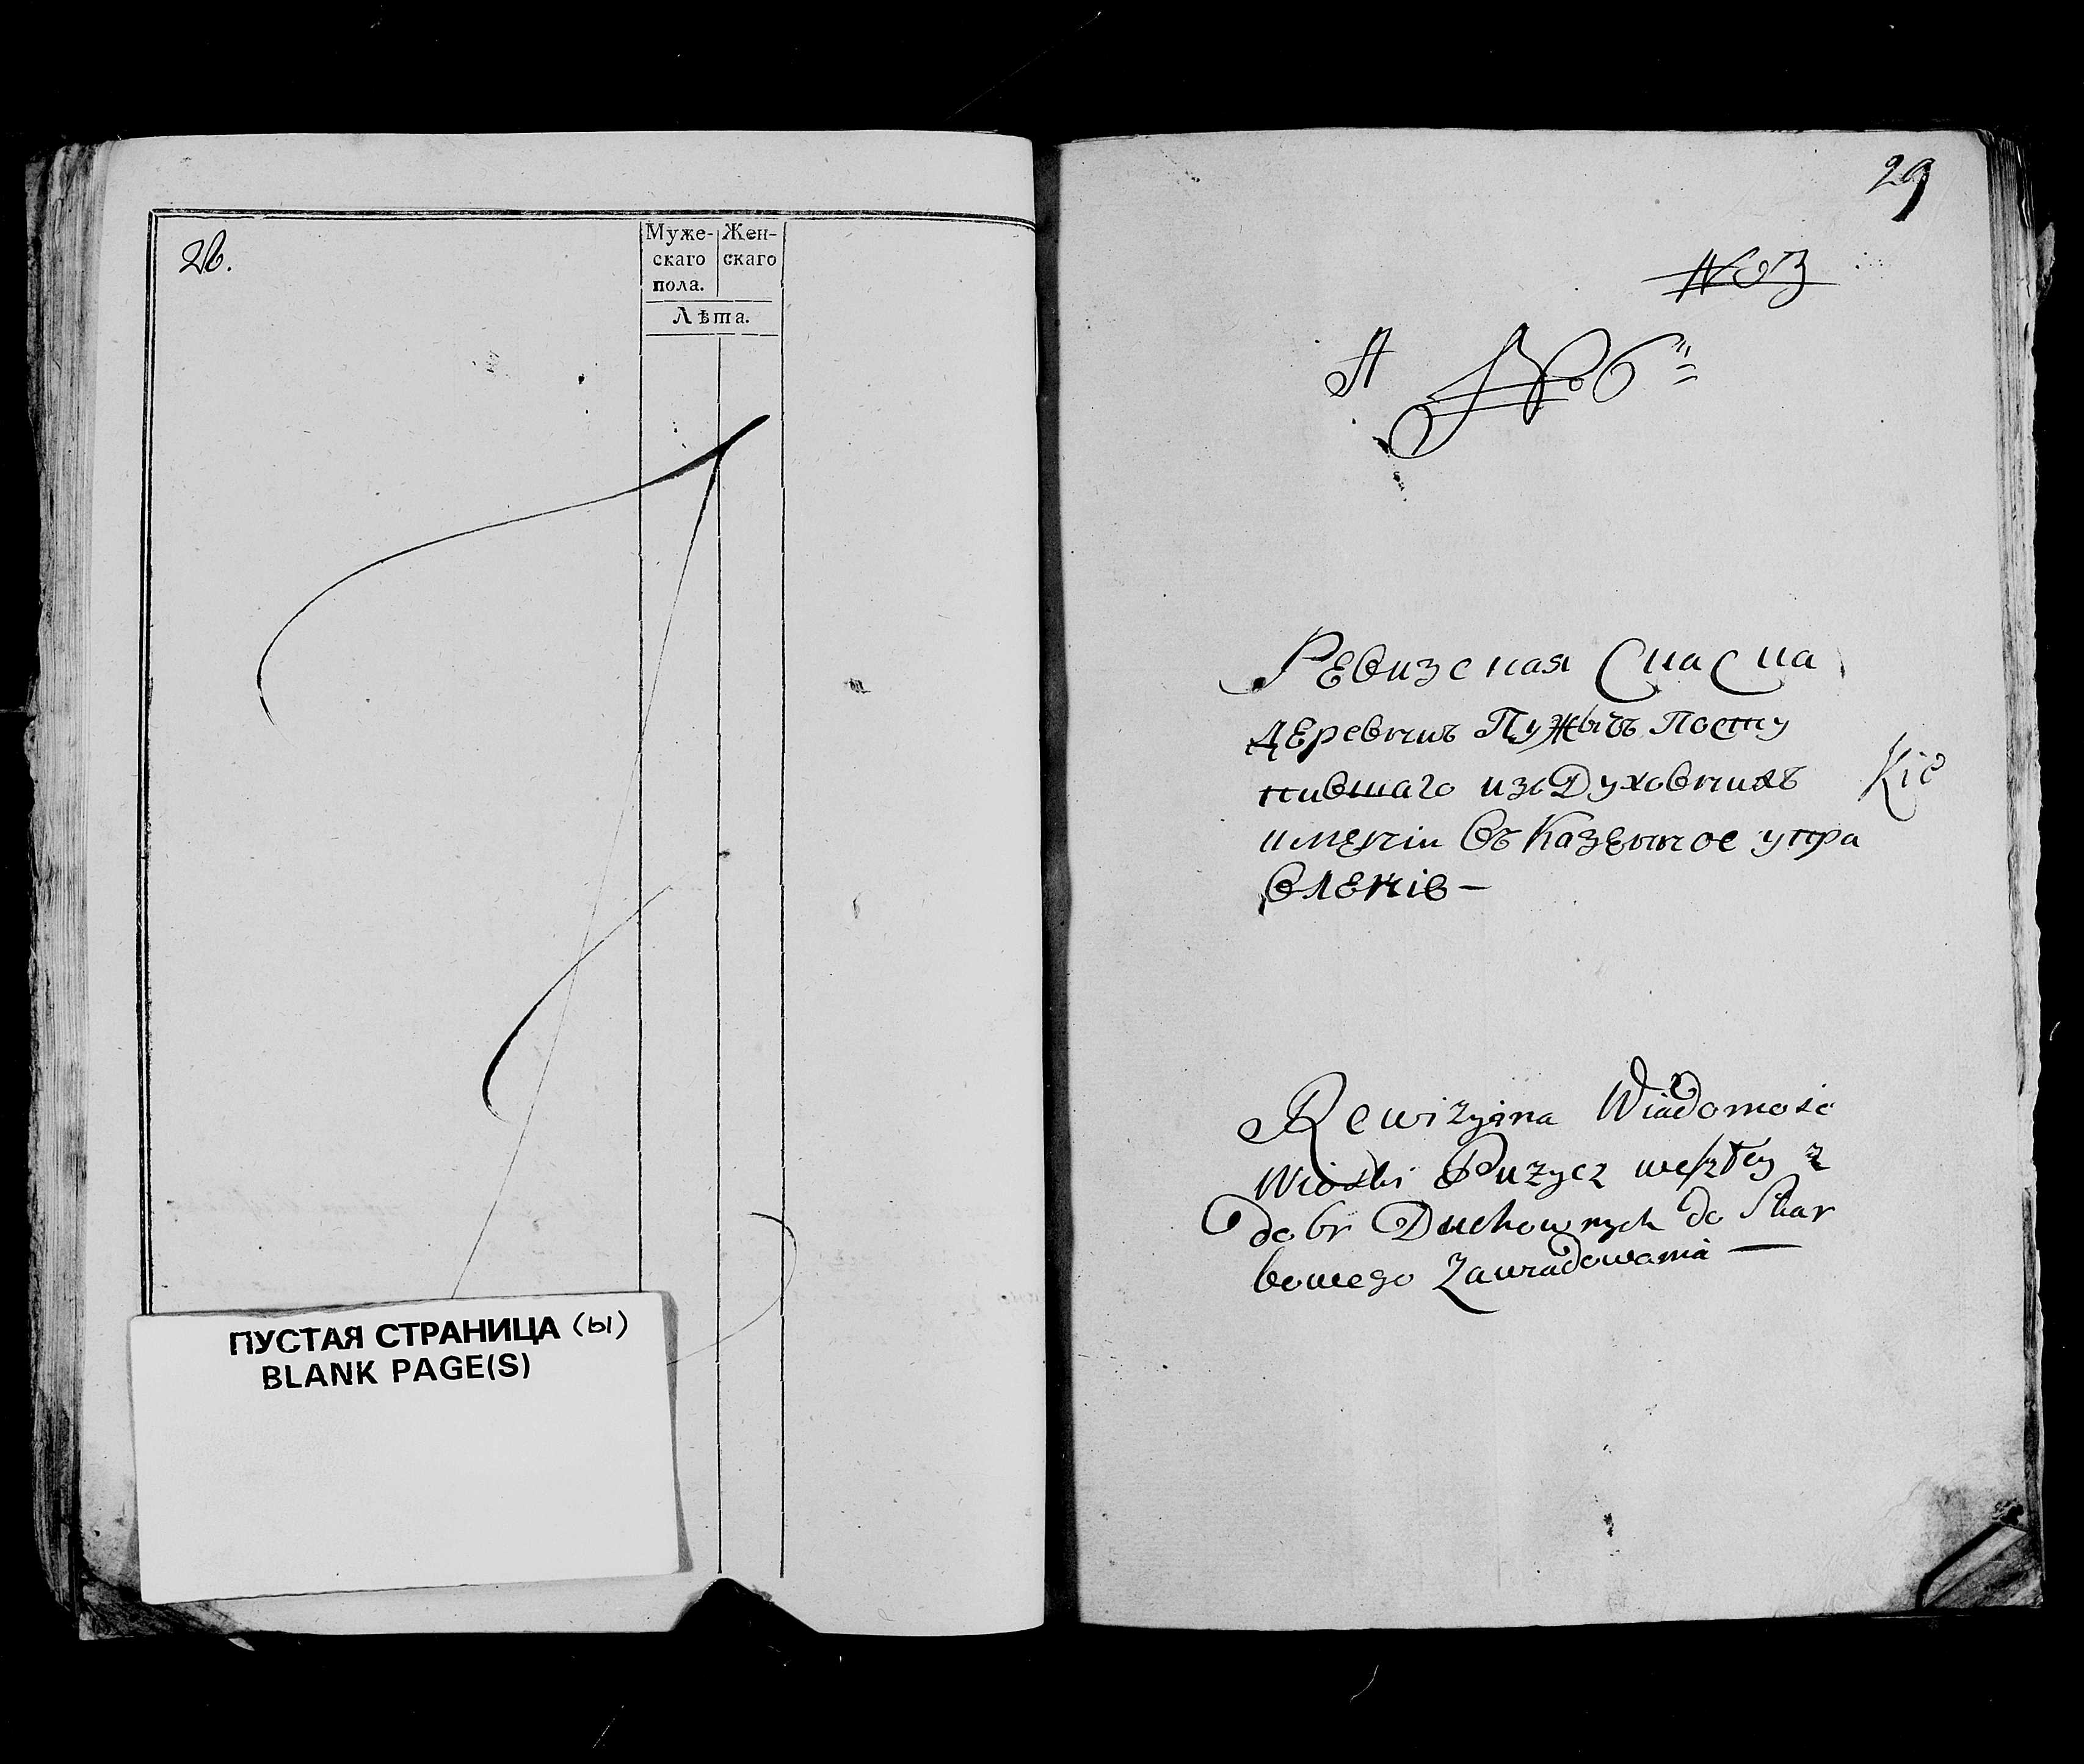 28.
Муже- Жен-
скаго скаго
пола.
Лѣта.
ПУСТАЯ СТРАНИЦА (Ы)
BLANK PAGE(S)
29
№ 3
А № 6
Ревизская Снасна
деревниъ Пужычъ Посту
пившаго изъ Духовнихъ
имѣніи въ Казенное упра
вленіе —
Rewizyjna Wiadomość
Wioski Puzycz weszłey z
dobr Duchownych do Skar
bowego Zawiadowania —